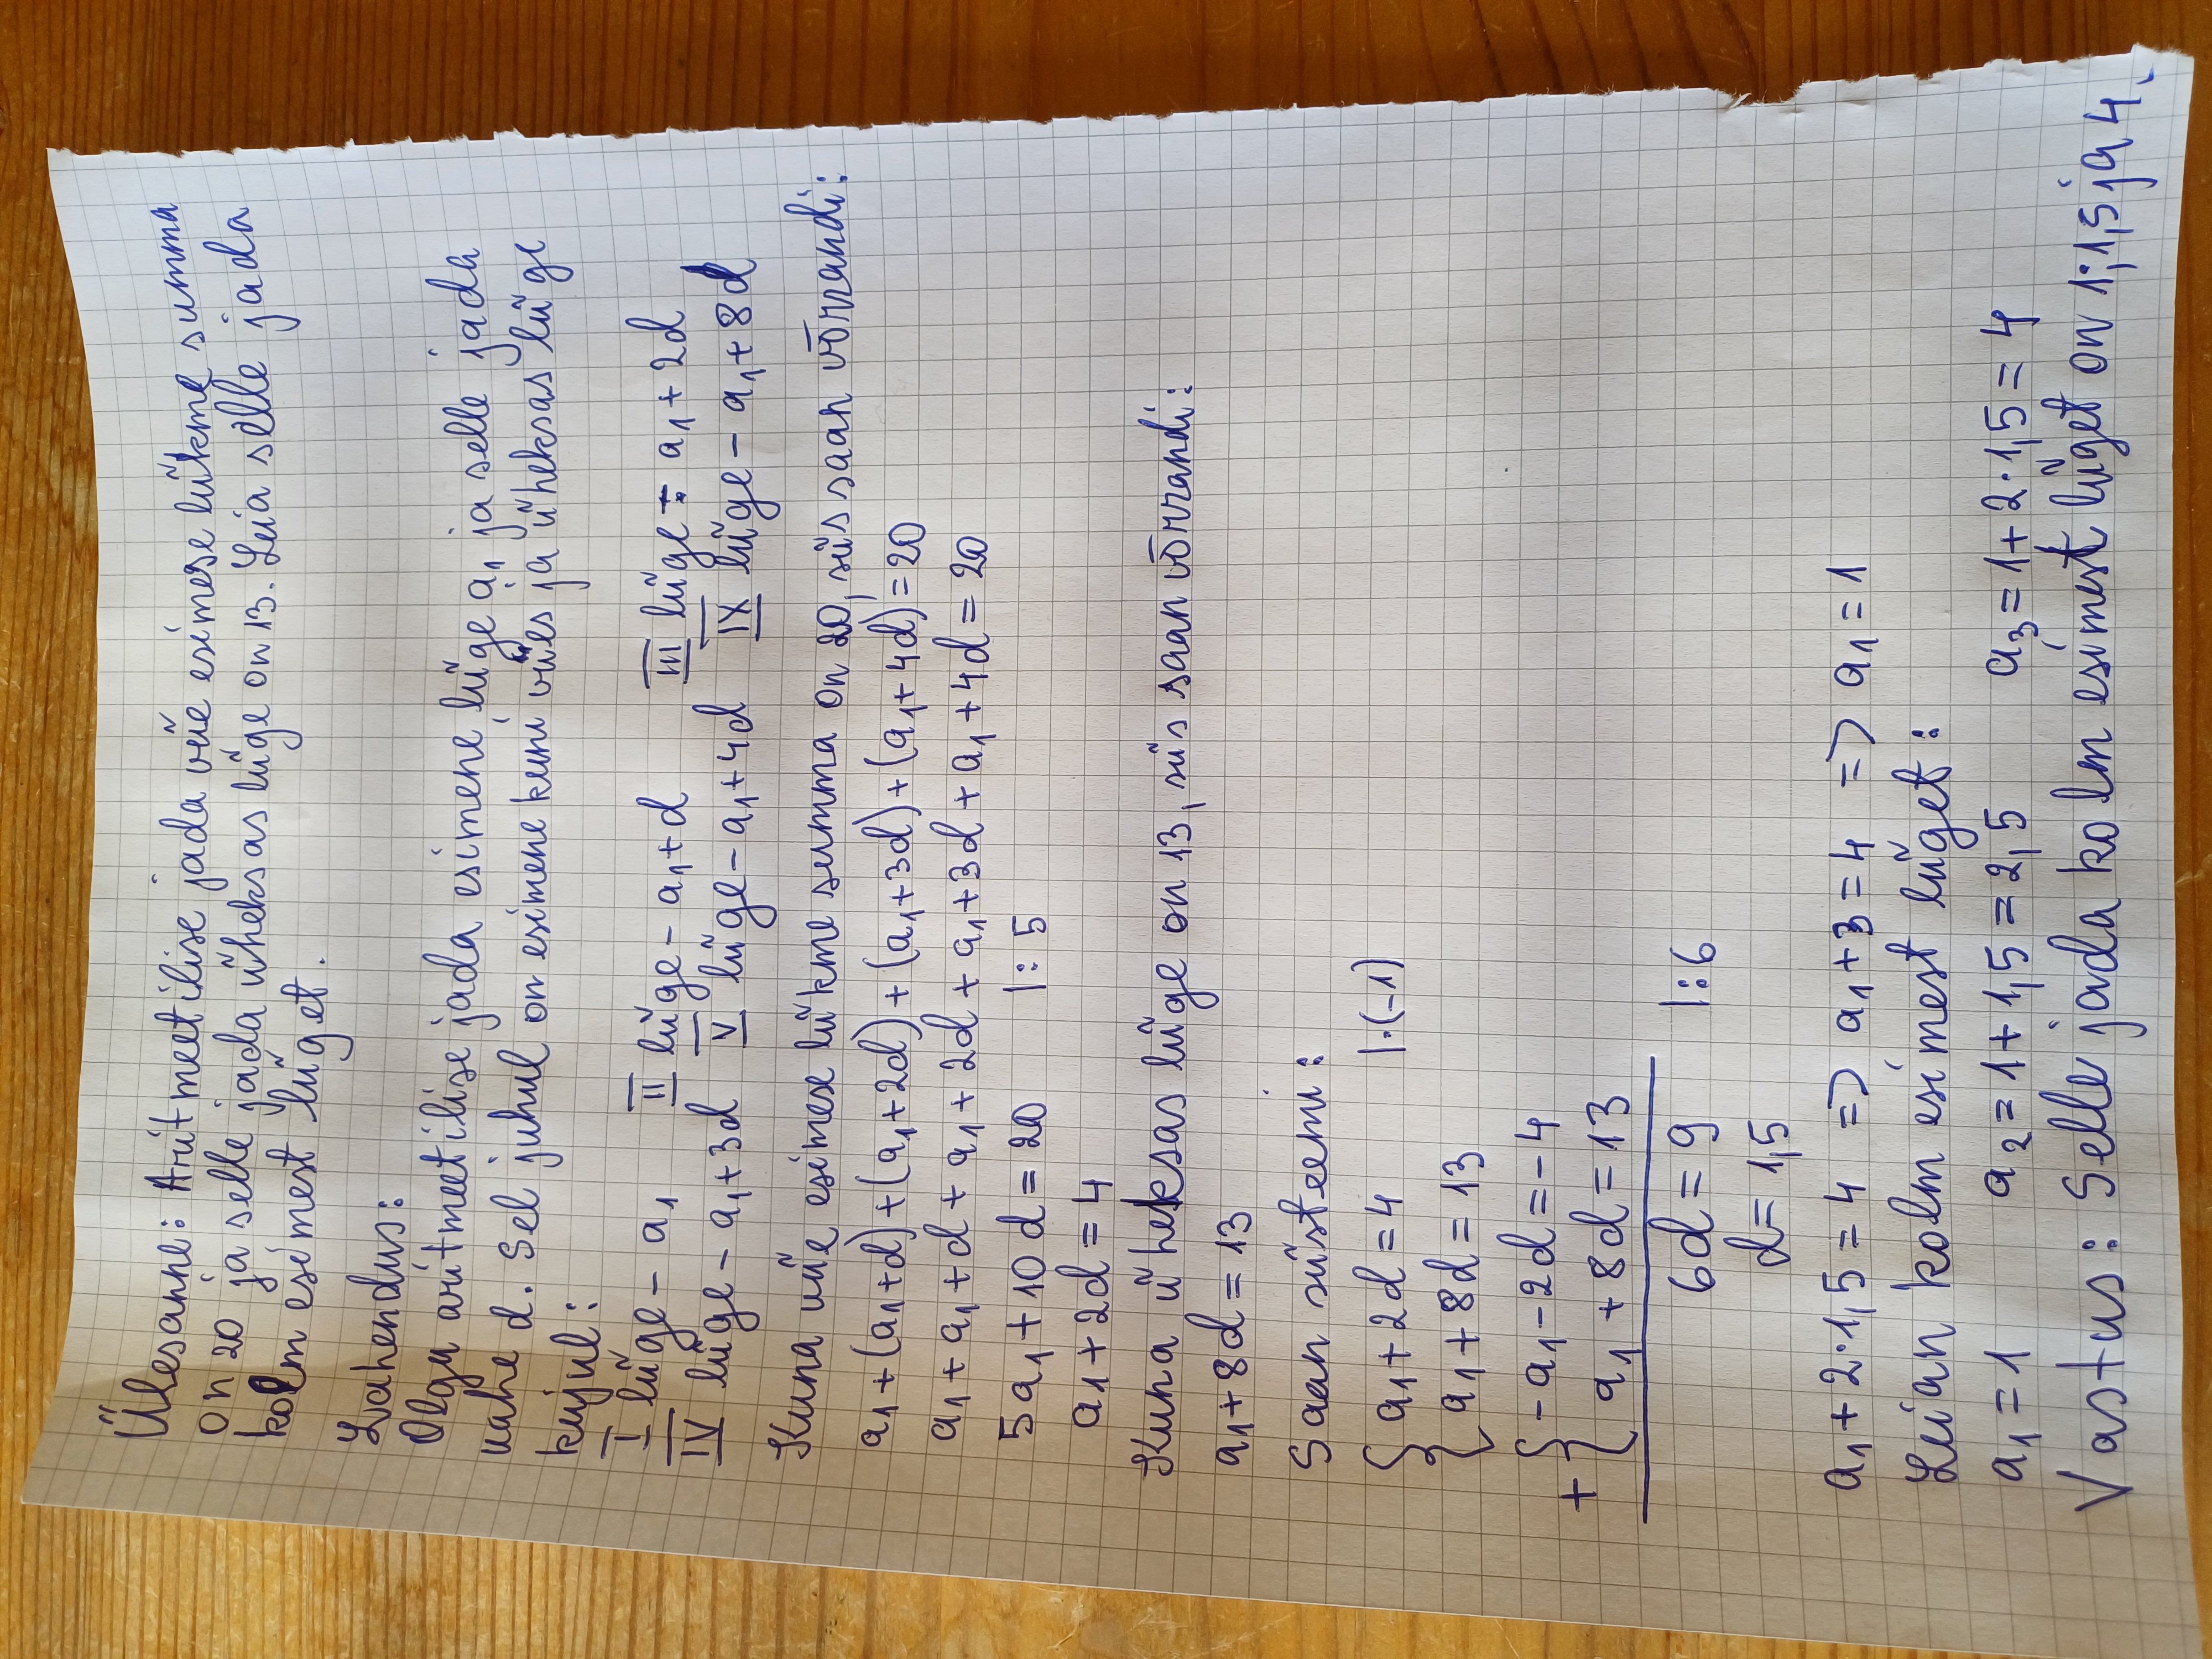 Ülesanne: Aritmeetilise jada viie esimese liikme summa
on 20 ja selle jada üheksas liige on 13. Leia selle jada
kolm esimest liiget.
Lahendus:
Olgu aritmeetilise jada esimene liige a₁ ja selle jada
vahe d. Sel juhul on esimene kuni viies ja üheksas liige
kujul:
I liige - a₁ II liige - a₁+d III liige - a₁+2d
IV liige - a₁+3d V liige - a₁+4d IX liige - a₁+8d
Kuna viie esimese liikme summa on 20, siis saan võrrandi:
a₁+(a₁+d)+(a₁+2d)+(a₁+3d)+(a₁+4d)=20
a₁+a₁+d+a₁+2d+a₁+3d+a₁+4d=20
5a₁+10d=20 |:5
a₁+2d=4
Kuna üheksas liige on 13, siis saan võrrandi:
a₁+8d=13
Saan süsteemi:
{ a₁+2d=4 |·(-1)
a₁+8d=13
+ { -a₁-2d=-4
a₁+8d=13
6d=9 |:6
d=1,5
a₁+2·1,5=4 => a₁+3=4 => a₁=1
Leian kolm esimest liiget:
a₁=1 a₂=1+1,5=2,5 a₃=1+2·1,5=4
Vastus: Selle jada kolm esimest liiget on 1; 1,5 ja 4.